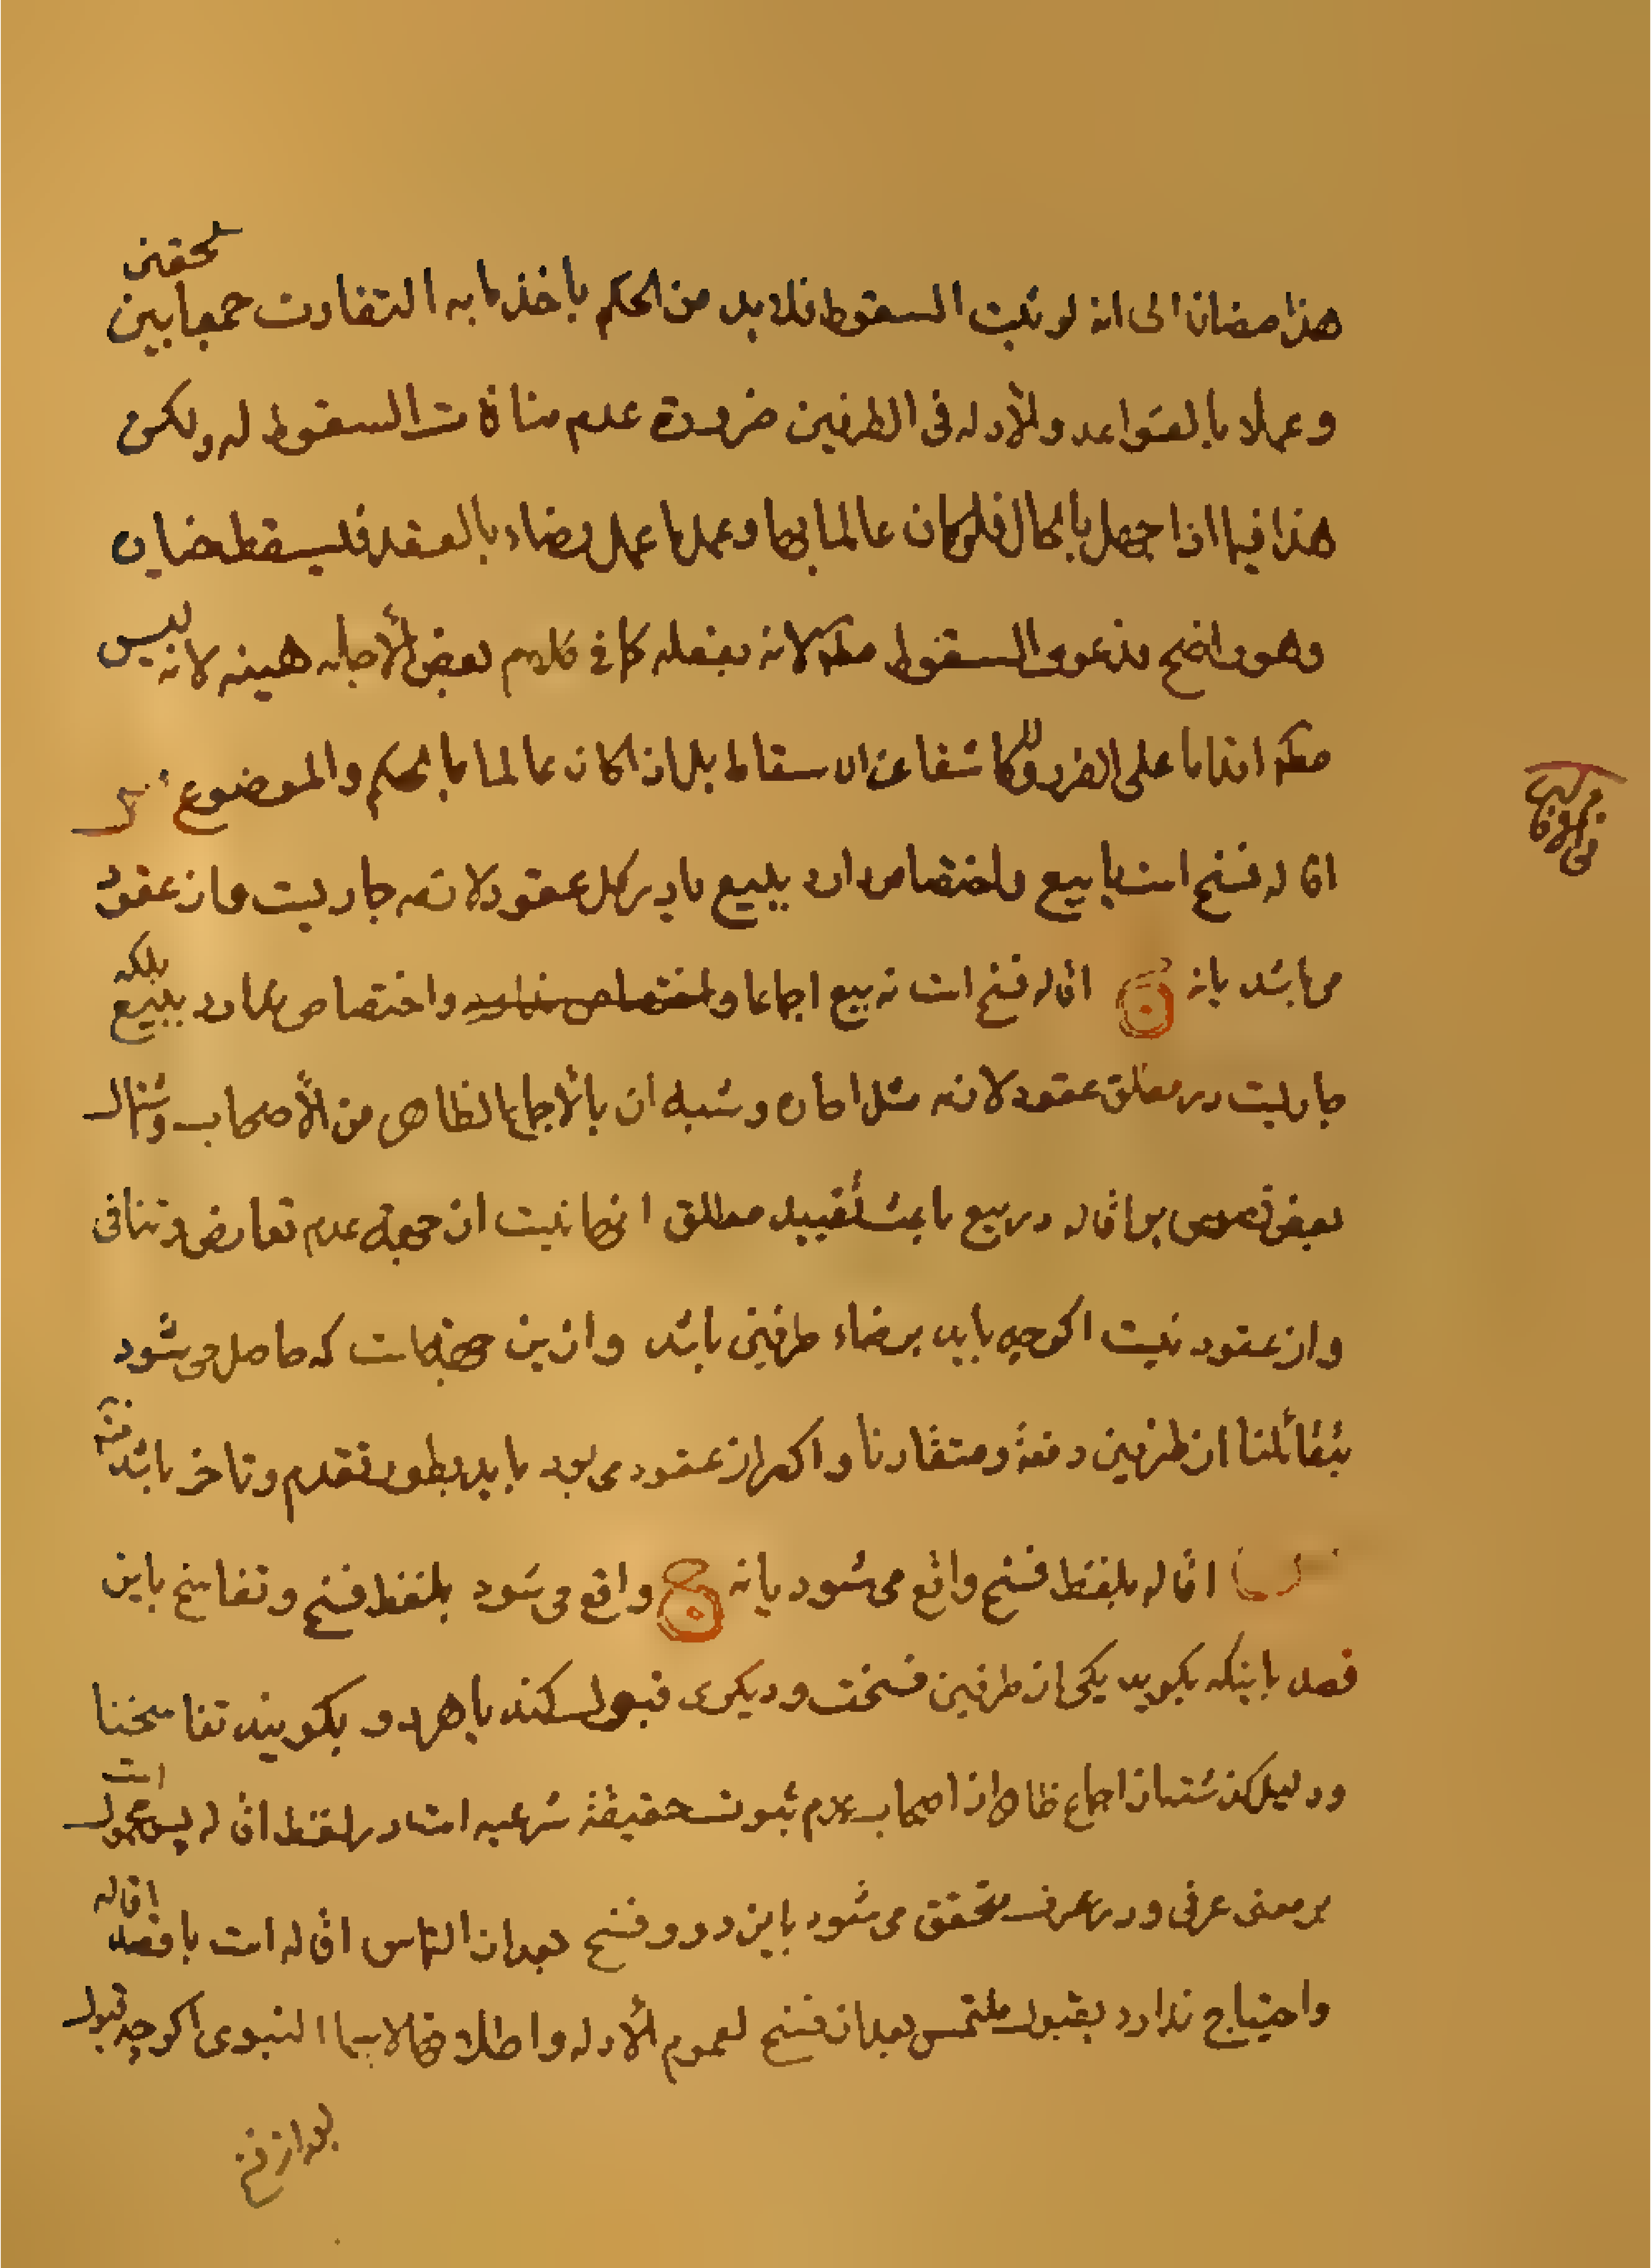 هذا مضافا الى انه لو ثبت السقوط فلا بد من الحكم باخذ ما به التفاوت جمعا بين الحقين
وعملا بالقواعد والأدله فى الطرفين ضرورة عدم منافاة السقوط له ولكن
هذا فيما اذا جهل بالحال فلو كان عالما بها وعمل ما عمل رضاء بالعقد فليسقط ضمان
وهو واضح فدعوى السقوط مطلقا لانه بفعله كما فى كلام بعض الأجله هينه لانه ليس
مطلقا اقداما على الضرر ولا كاشفا عن الاسقاط بل اذا كان عالما بالحكم والموضوع
اقاله فسخ است يا بيع واختصاص دارد ببيع يا در كل عقود لازمه جاريست و از عقود
مى باشد يا نه ج اقاله فسخ است نه بيع اجماعا واختصاص ندارد ببيع بلكه
جاريست در مطلق عقود لازمه مثل اجاره و شبه ان بالأجماع الظاهر من الأصحاب
بعض نصوص بر اقاله در بيع باعث تقييد مطلق انها نيست از جهة عدم تعارض و تنافى
و از عقود نيست اكرچه بايد برضاء طرفين باشد و از اين جهة است كه حاصل مى شود
بتقائلنا از طرفين دفعة و متقارنا و اكر از عقود مى بود بايد بطور تقدم و تاخر باشد
س اقاله بلفظ فسخ واقع مى شود يا نه ج واقع مى شود بلفظ فسخ و تفاسخ باين
قصد باينكه بكويد يكى از طرفين فسخت و ديكرى قبول كند يا هر دو بكويند تفاسخنا
و دليل كذشته از اجماع ظاهر از اصحاب عدم ثبوت حقيقة شرعيه است در لفظ اقاله پس محمول است
بر معنى عرفى و در عرف متحقق مى شود باين دو و فسخ بعد از التماس اقاله است با قصد اقاله
و احتياج ندارد بقبول ملتمس بعد از فسخ لعموم الأدله و اطلاقها لا سيما النبوى اكرچه قبول
بعد از فسخ
فى الاقاله